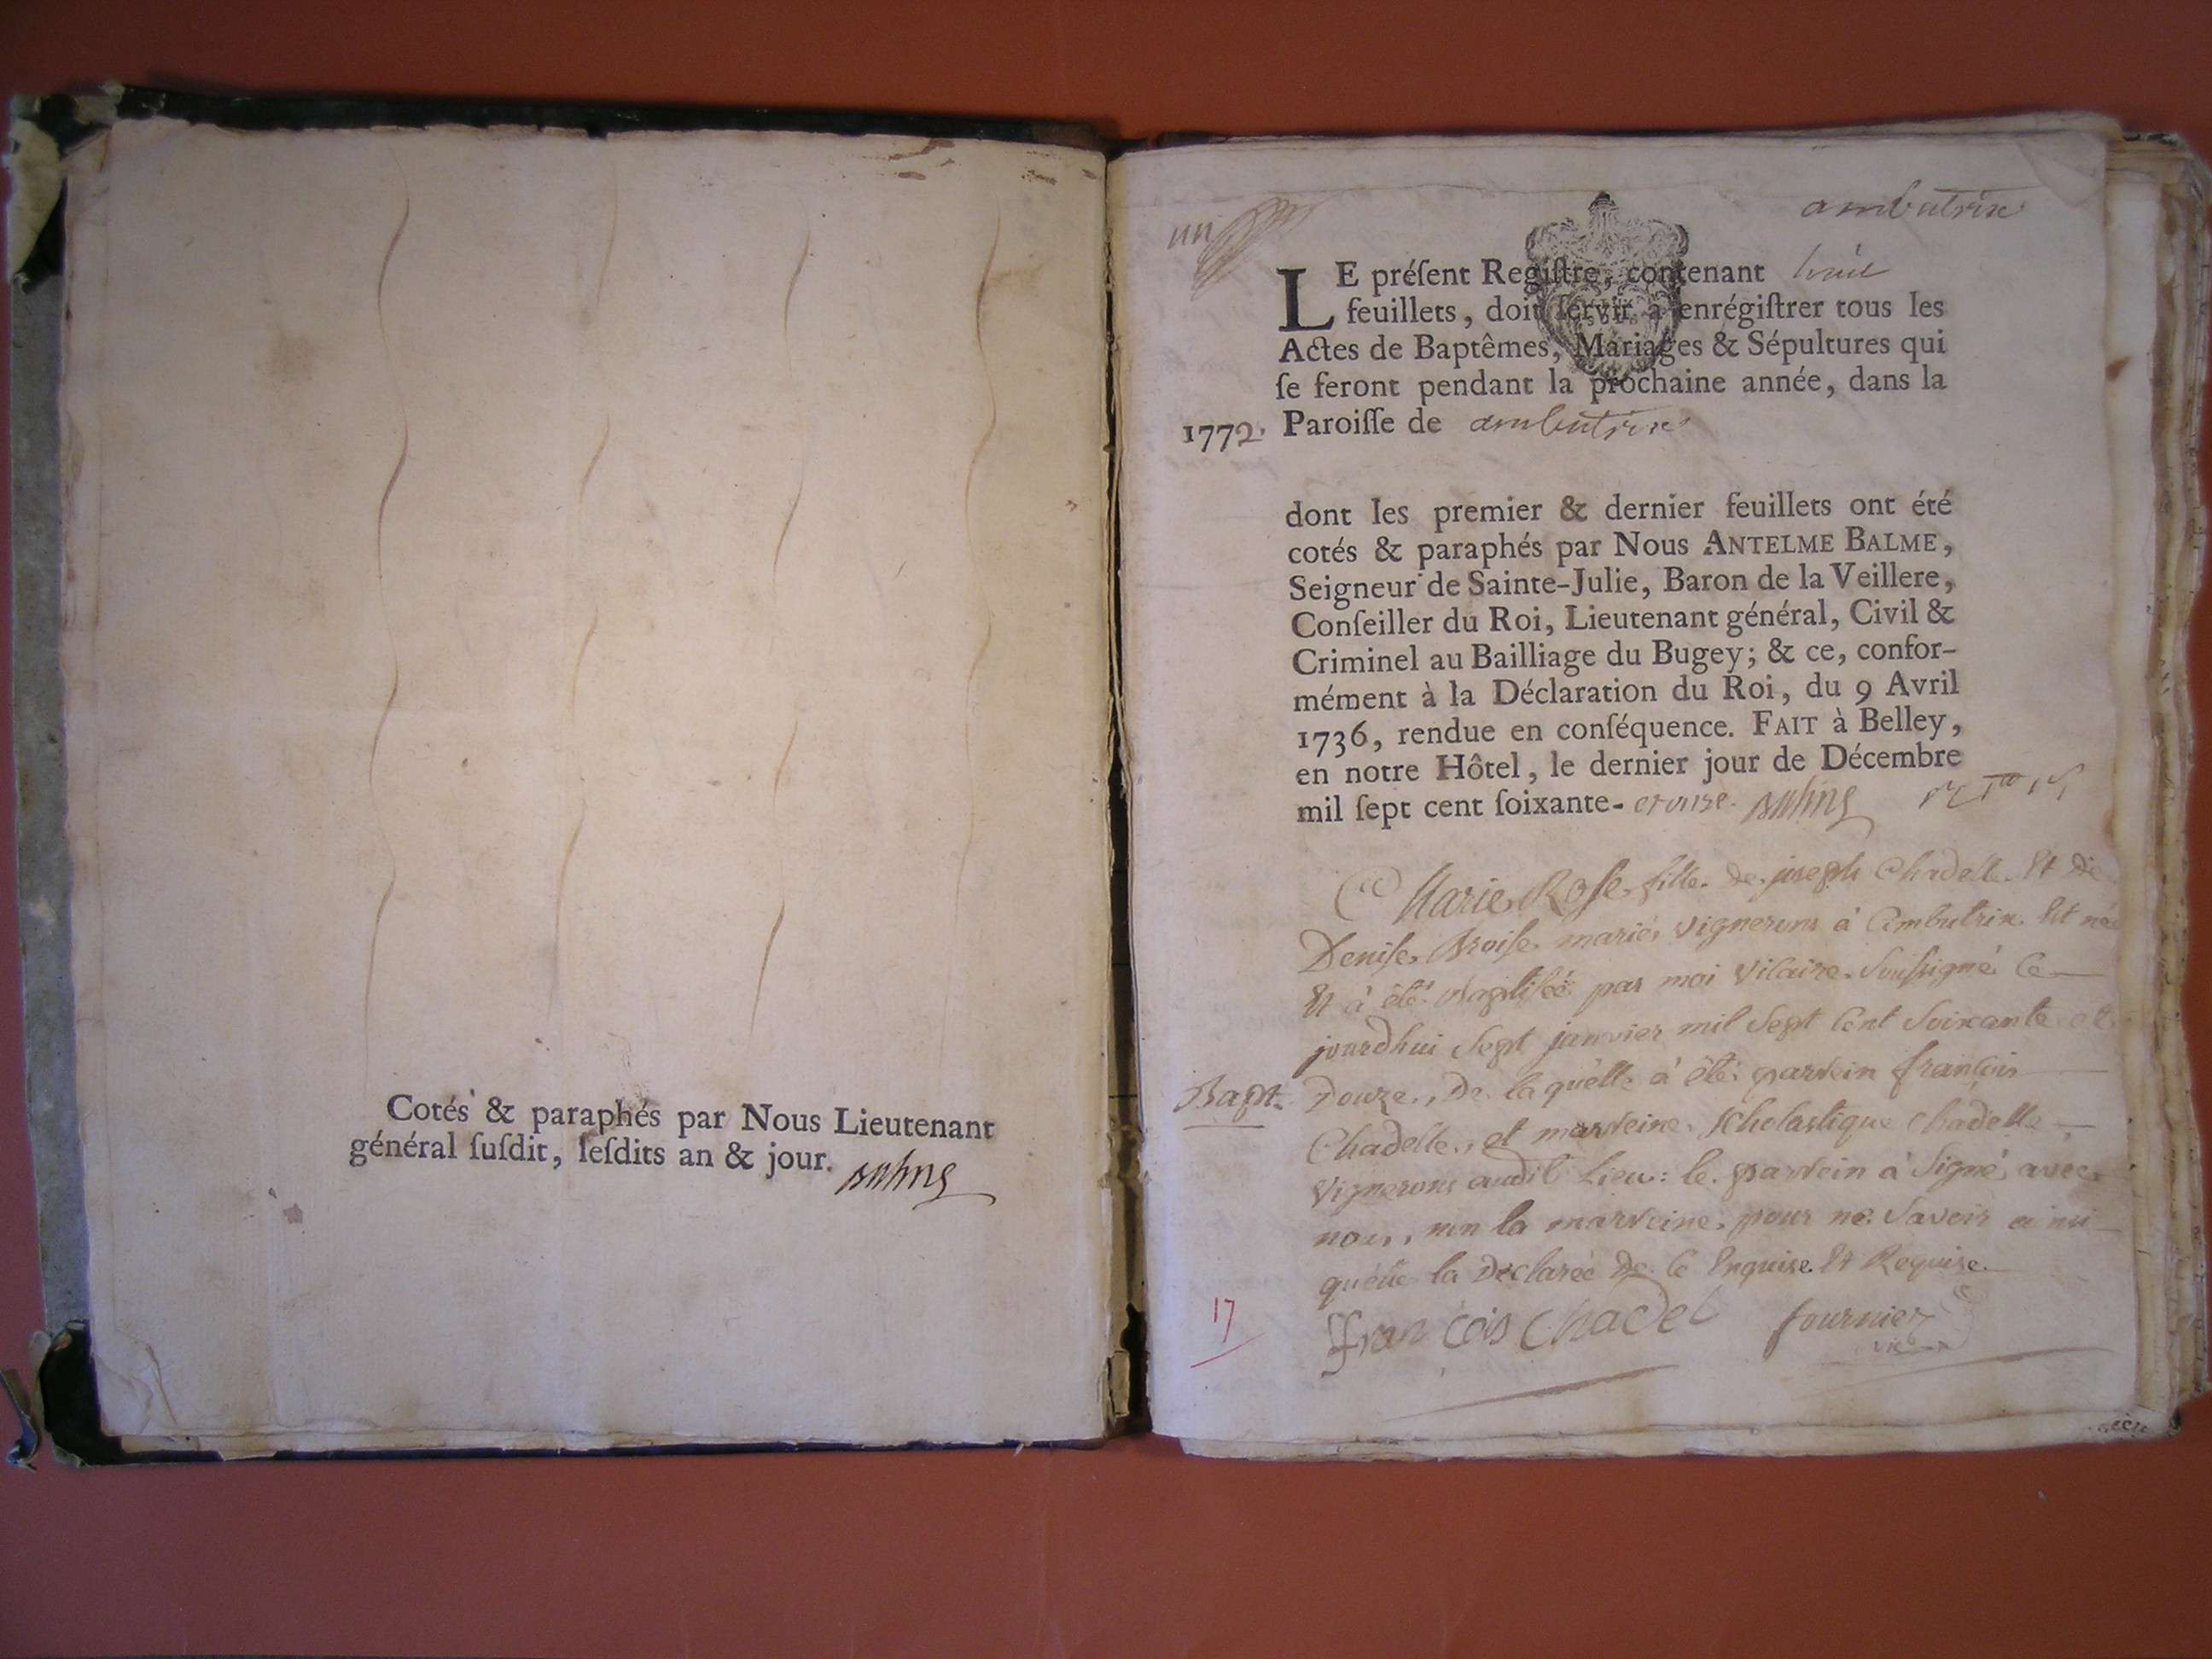 Cotés & paraphés par Nous Lieutenant
général ſuſdit, leſdits an & jour.
un
ambutrix
LE préſent Regiſtre, contenant huit
feuillets, doit ſervir à enrégiſtrer tous les
Actes de Baptêmes, Mariages & Sépultures qui
ſe feront pendant la prochaine année, dans la
1772. Paroiſſe de ambutrix
dont les premier & dernier feuillets ont été
cotés & paraphés par Nous ANTELME BALME,
Seigneur de Sainte-Julie, Baron de la Veillere,
Conſeiller du Roi, Lieutenant général, Civil &
Criminel au Bailliage du Bugey; & ce, confor-
mément à la Déclaration du Roi, du 9 Avril
1736, rendue en conſéquence. FAIT à Belley,
en notre Hôtel, le dernier jour de Décembre
mil ſept cent ſoixante- et onze.
Marie Roſe fille de joseph Chadelle Et de
Deniſe mariés vignerons à Ambutrix Est née
Et à été Baptiſée par moi Vicaire Souſsigné Ce
jourdhui Sept janvier mil Sept Cent Soixante et
Bapt. Douze, De laquelle à été parrein françois
Chadelle, et marreine Scholastique Chadelle
vignerons audit Lieu: le parrein à Signé avec
nous, non la marreine pour ne Savoir ainsi
quelle la declaréé de Ce Enquise Et Requise.
17
françois Chadel fournier
vic